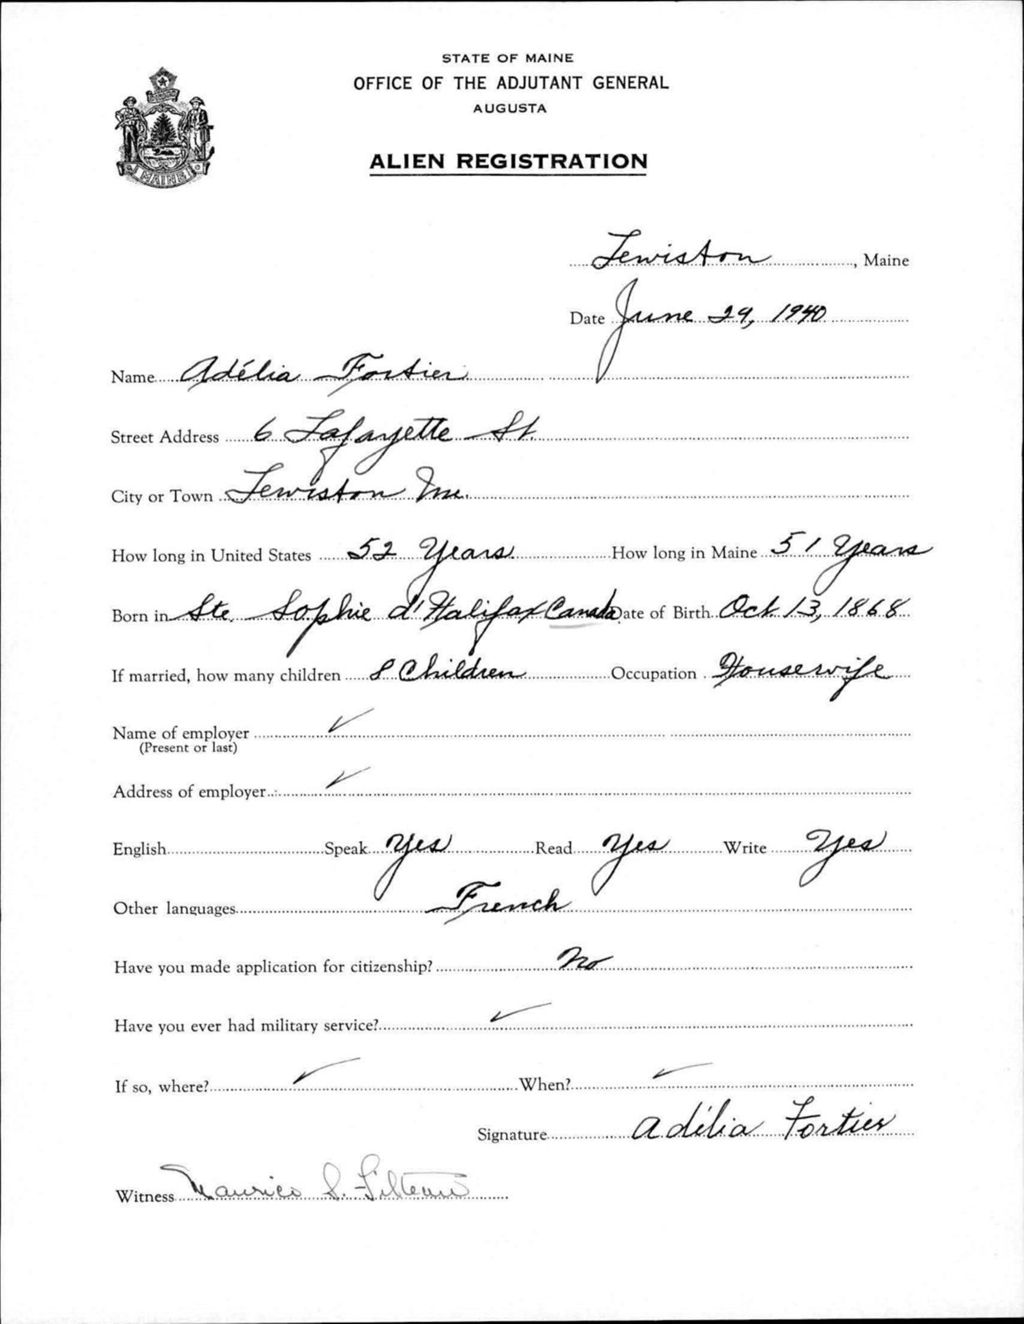 STATE OF MAINE
OFFICE OF THE ADJUTANT GENERAL
AUGUSTA
ALIEN REGISTRATION
MAINE
Lewiston, Maine
Date June 29, 1940
Name Adélia Fortier
Street Address 6 Lafayette St.
City or Town Lewiston Me.
How long in United States 52 Years How long in Maine 51 Years
Born in Ste. Sophie d'Halifax Canada Date of Birth Oct. 13, 1868
If married, how many children 8 Children Occupation Housewife
Name of employer ✓
(Present or last)
Address of employer ✓
English Speak Yes Read Yes Write Yes
Other languages French
Have you made application for citizenship? No
Have you ever had military service? ✓
If so, where? ✓ When? ✓
Signature Adélia Fortier
Witness Maurice S. Filteau